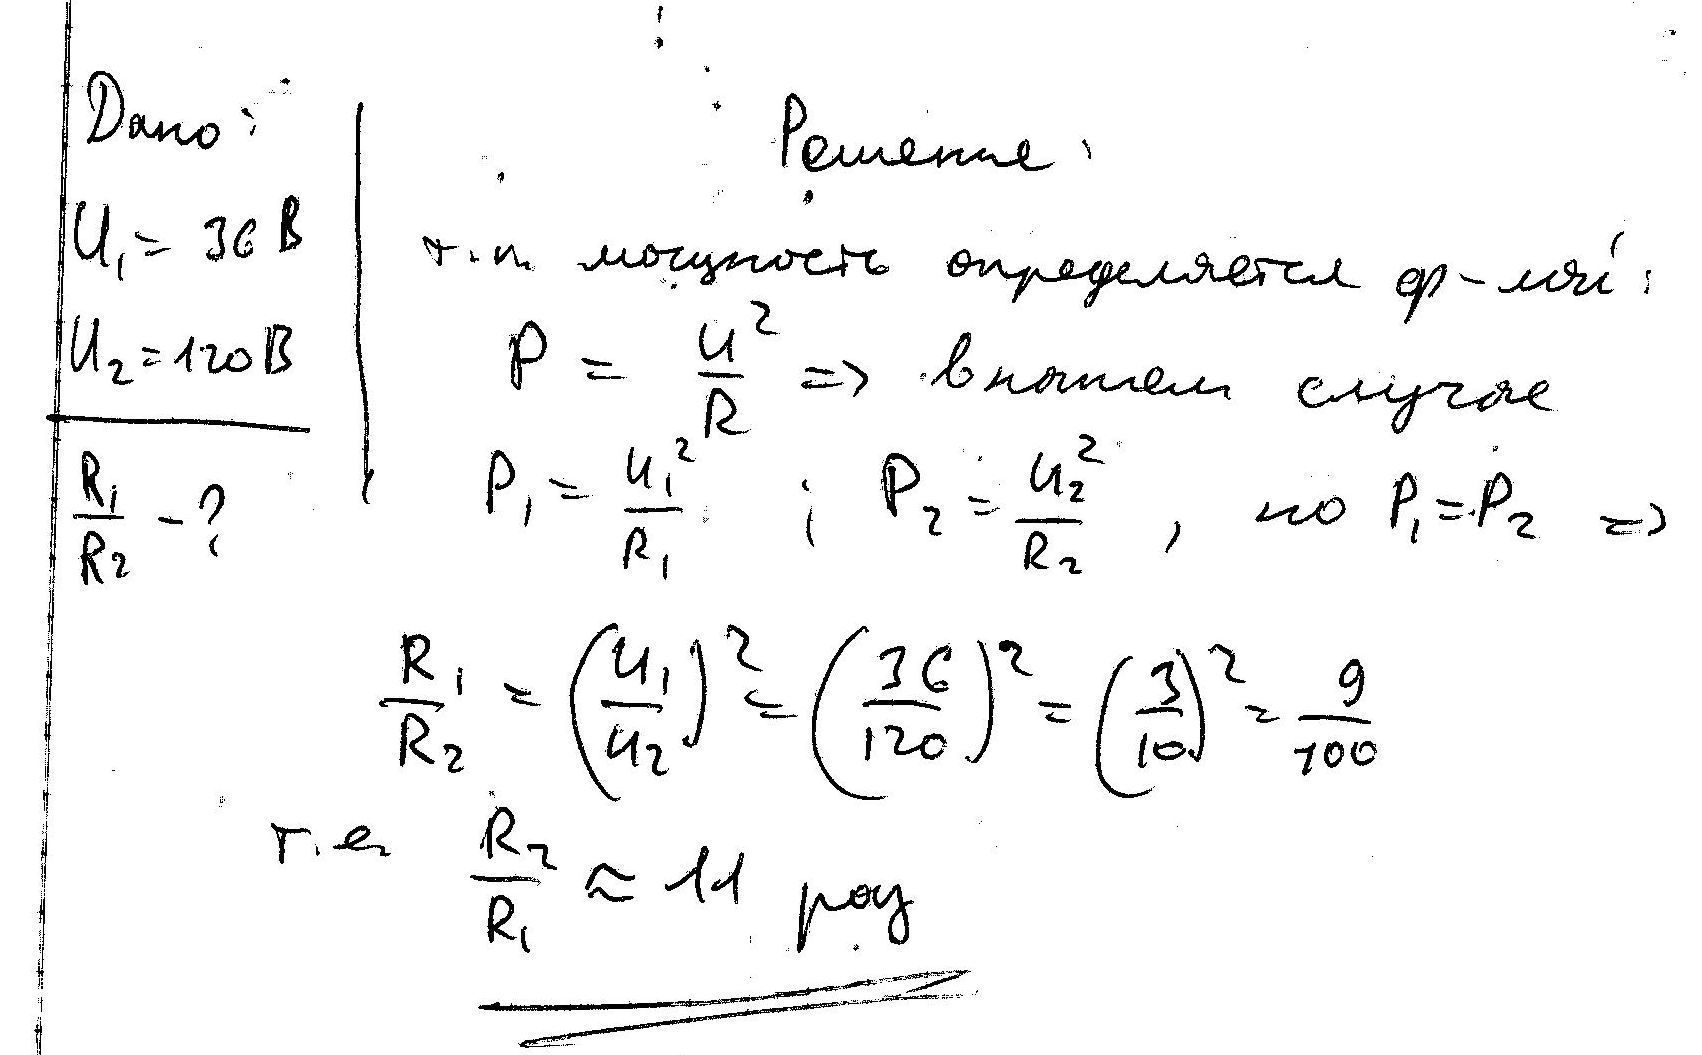 Дано:
U₁ = 36 В
U₂ = 120 В
R₁/R₂ - ?
Решение:
т.к. мощность определяется ф-лой:
P = U²/R => в нашем случае
P₁ = U₁²/R₁ ; P₂ = U₂²/R₂ , но P₁ = P₂ =>
R₁/R₂ = (U₁/U₂)² = (36/120)² = (3/10)² = 9/100
т.е. R₂/R₁ ≈ 11 раз